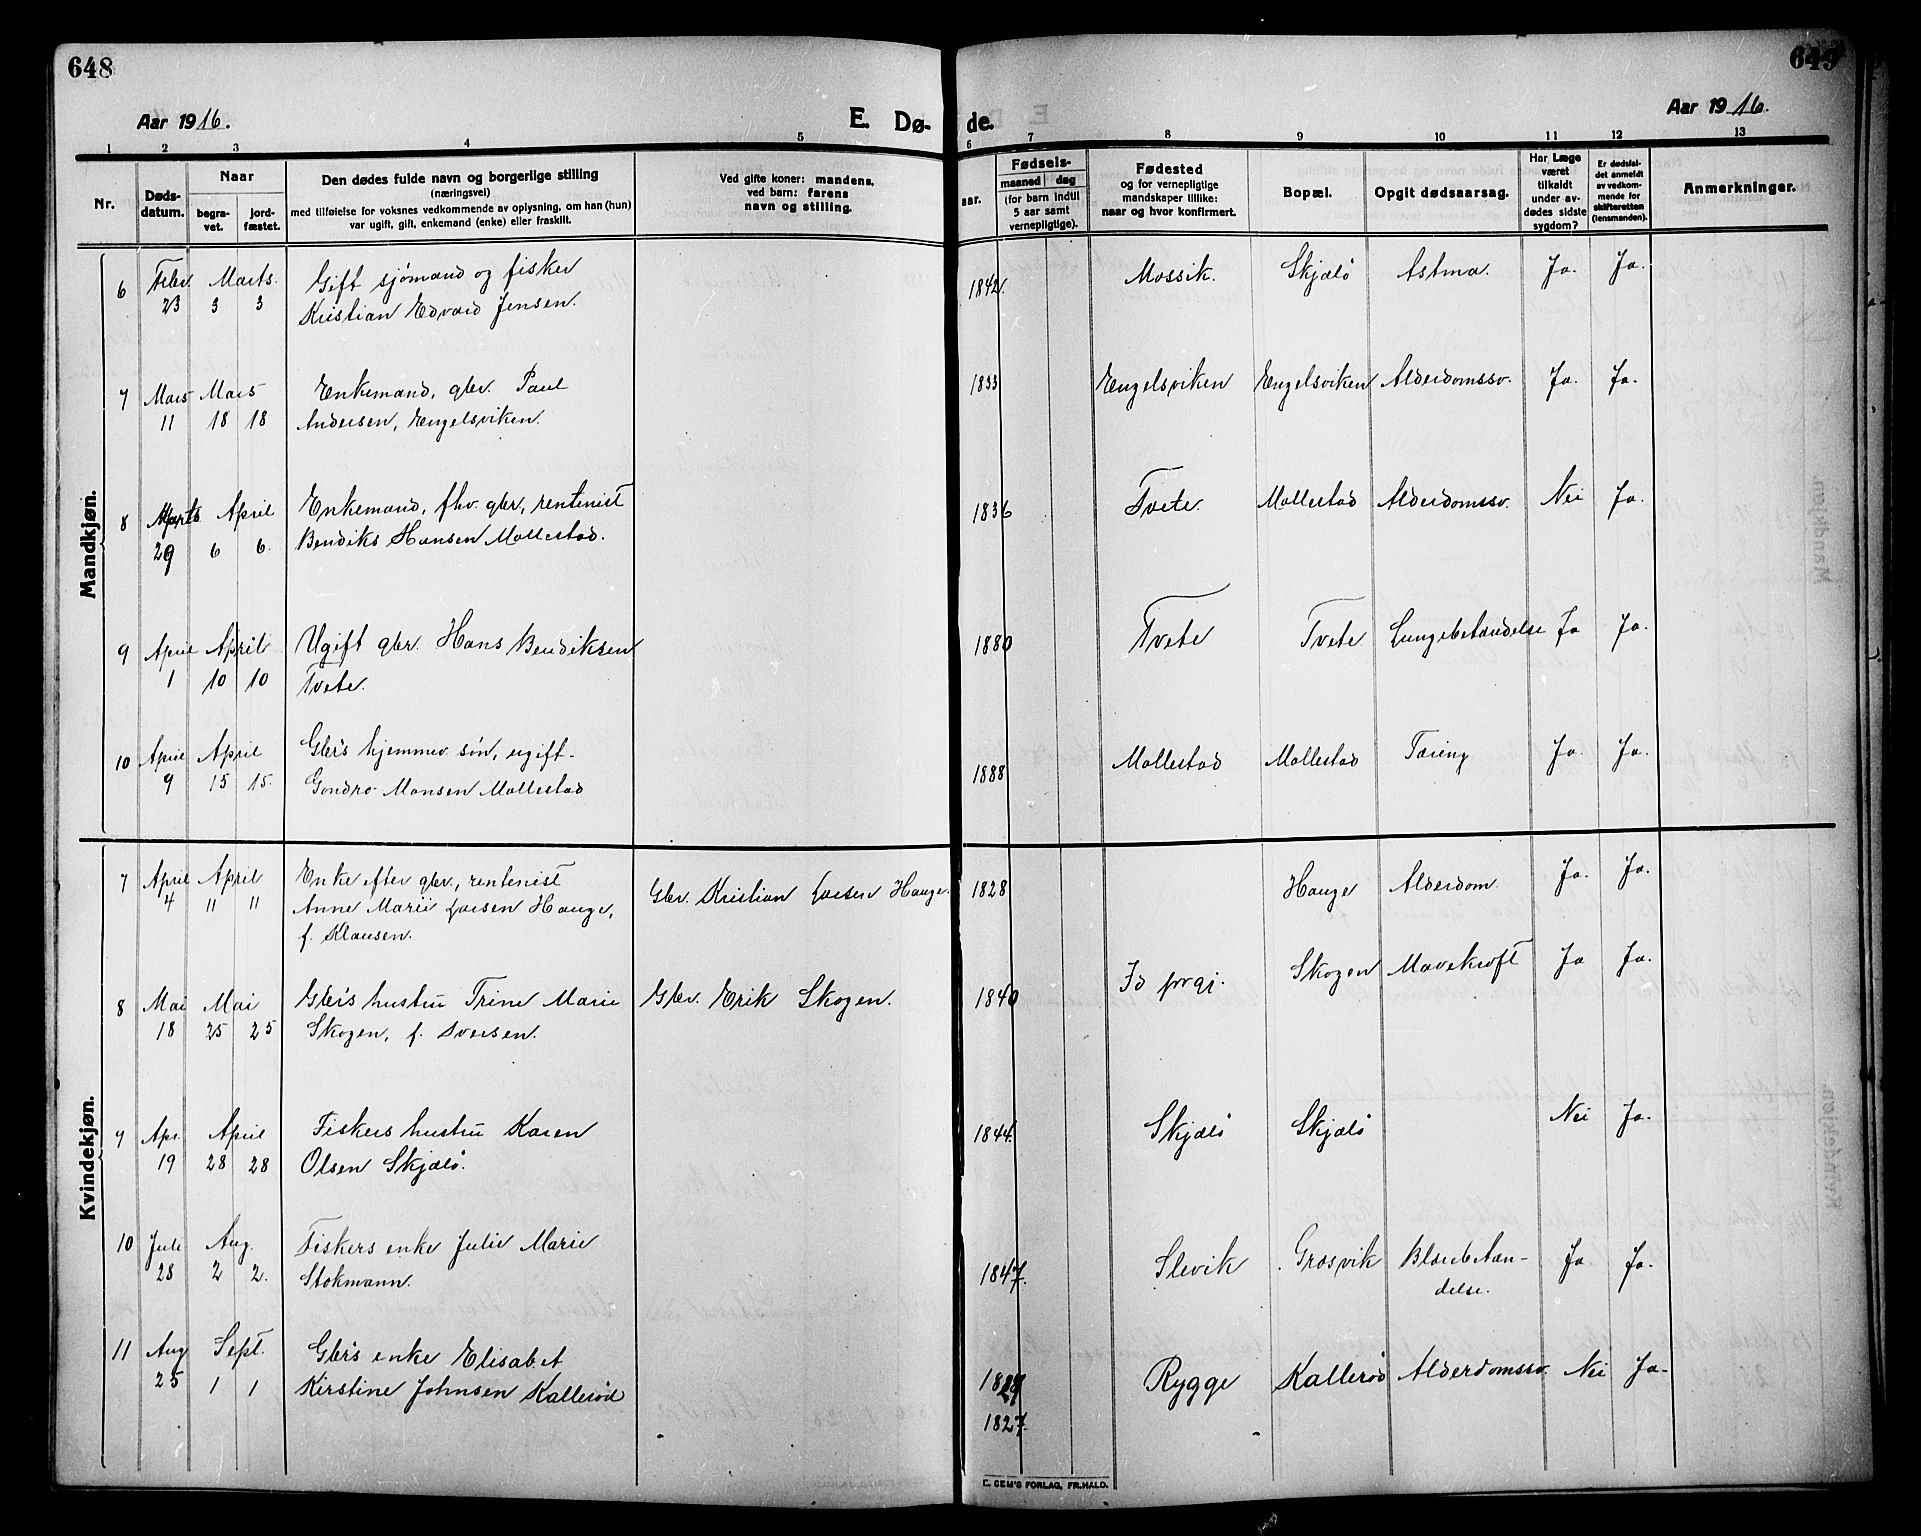 648
649
Aar 1916.
E. Dø- de.
Aar 1916.
1 2 3 4 5 6 7 8 9 10 11 12 13
Nr.
Døds-
datum.
Naar
begra-
vet.
jord-
fæstet.
Den dødes fulde navn og borgerlige stilling
(næringsvei)
med tilføielse for voksnes vedkommende av oplysning, om han (hun)
var ugift, gift, enkemand (enke) eller fraskilt.
Ved gifte koner: mandens,
ved barn: farens
navn og stilling.
aar.
Fødsels-
maaned dag
(for barn indtil
5 aar samt
vernepligtige).
Fødested
og for vernepligtige
mandskaper tillike:
naar og hvor konfirmert.
Bopæl.
Opgit dødsaarsag.
Har Læge
været
tilkaldt
under av-
dødes sidste
sygdom?
Er dødsfal-
det anmeldt
av vedkom-
mende for
skifteretten
(lensmanden).
Anmerkninger.
Mandkjøn.
6 Febr. Marts. Gift sjømand og fisker 1842. Mossik. Skjælø Astma. Ja. Ja.
23 3 3 Kristian Edvard Jensen.
7 Mars Mars Enkemand, gbr. Paul 1833 Engelsviken Engelsviken Alderdomssv. Ja. Ja.
11 18 18 Andersen, Engelsviken.
8 Marts April Enkemand, fhv. gbr, rentenist 1836 Tvete. Mollestad Alderdomssv. Nei Ja.
29 6 6. Bendiks Hansen Mollestad.
9 April April Ugift gbr. Hans Bendiksen 1880 Tvete Tvete Lungebetændelse Ja Ja.
1 10 10 Tvete.
10 April April Gbr's hjemmev. søn, ugift- 1888 Mollestad Mollestad Tæring Ja. Ja.
9 15 15. Gondro Monsen Mollestad
Kvindekjøn.
7 April April Enke efter gbr., rentenist Gbr. Kristian Larsen Hauge. 1828 Hauge Alderdom. Ja. Ja.
4 11 11 Anne Marie Larsen Hauge,
f. Klausen.
8 Mai Mai Gbr's hustru Trine Marie Gbr. Erik Skogen. 1840 Id prgj. Skogen Mavekræft Ja Ja.
18 25 25 Skogen, f. Iversen.
9 Apr. April Fiskers hustru Karen 1844. Skjælø Skjælø Nei Ja.
19 28 28 Olsen Skjælø.
10 Juli Aug. Fiskers enke Julie Marie 1847. Slevik Græsvik Blærebetæn- Ja Ja.
28 2 2. Stokmann. delse.
11 Aug Sept. Gbr's enke Elisabet 1827 Rygge Kallerød Alderdomssv. Nei Ja.
25 1 1 Kirstine Johnsen Kallerød
1827.
E. SEM'S FORLAG, FR.HALD.